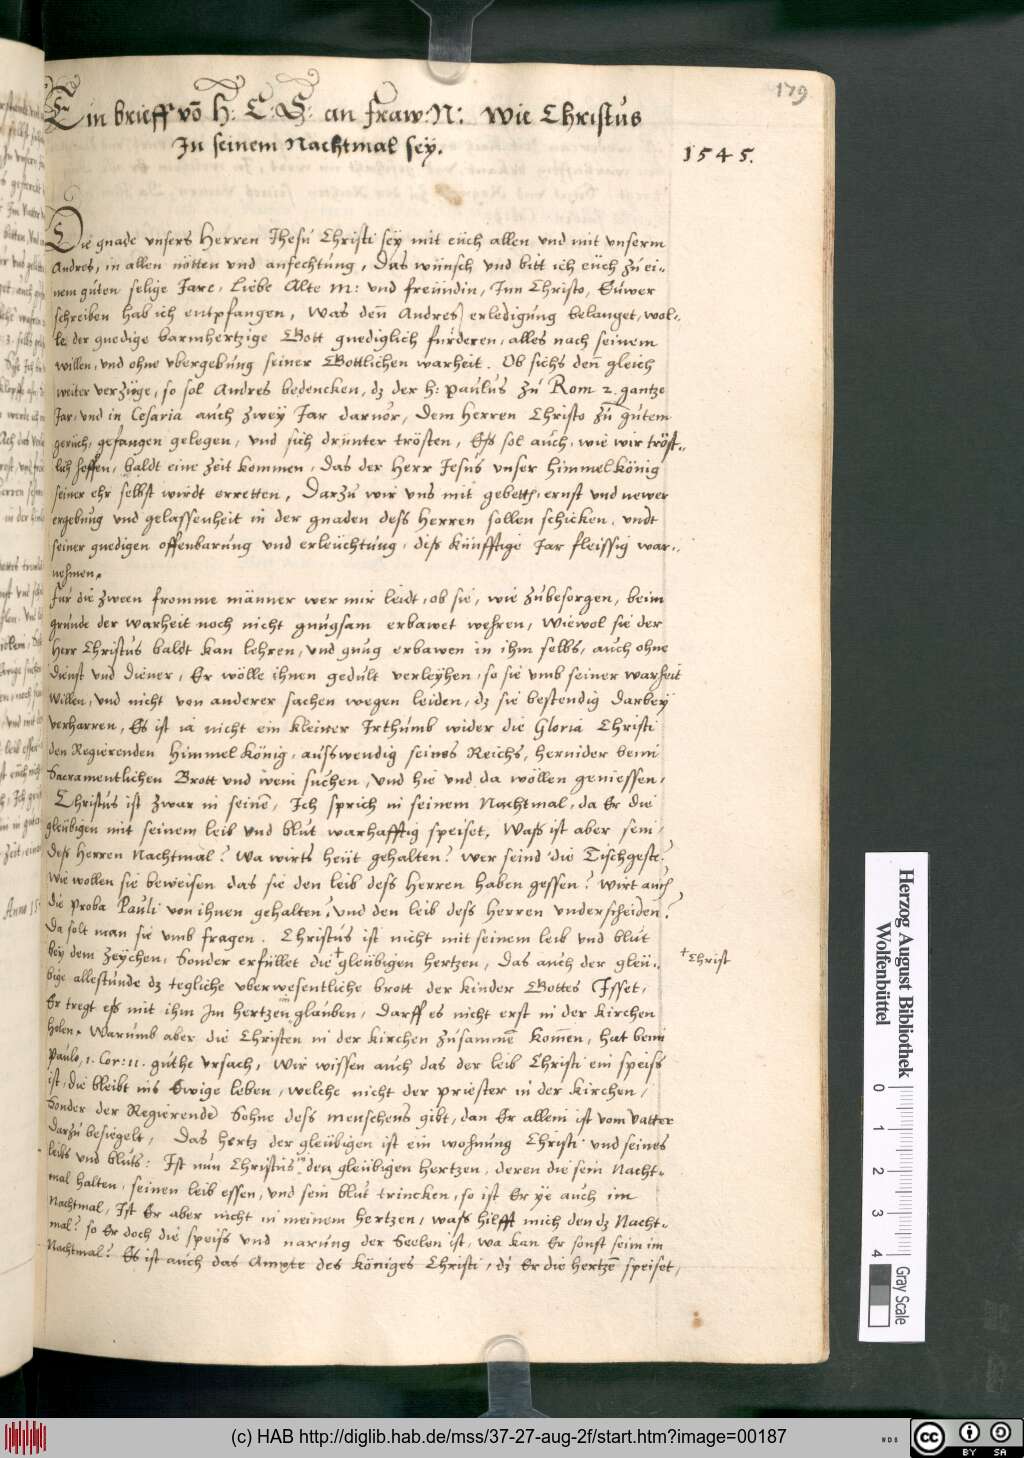 179
Ein brieff võ H: C: S: an fraw: N: Wie Christus
In seinem Nachtmal sey.
1545.
Die gnade unsers Herren Jhesu Christi sey mit euch allen und mit unserm
Andres, in allen nötten und anfechtung, Das wünsch und bitt ich euch zu ei-
nem guten selige Jare, Liebe Alte M: und freündin, Inn Christo, Euwer
schreiben hab ich entpfangen, Was deñ Andres erledigung belanget, wol-
le der gnedige barmhertzige Gott gnediglich fürderen, alles nach seinem
willen, und ohne ubergebung seiner Gottlichen warheit. Ob sichs deñ gleich
weiter verzüge, so sol Andres bedencken, dz der H: Paulus zu Rom 2. gantze
Jar, und in Cesaria auch zwey Jar darvor, Dem Herren Christo zu gutem
geruch, gefangen gelegen, und sich drunter trösten, Ess sol auch, wie wir tröst-
lich hoffen, baldt eine zeit kommen, Das der Herr Jesus unser himmelkönig
seiner ehr selbst wirdt erretten, Darzu wir uns mit gebett, ernst und newer
ergebung und gelassenheit in der gnaden dess Herren sollen schicken, undt
seiner gnedigen offenbarung und erleüchtung, diss künfftige Jar fleissig war-
nehmen.
Für die zween fromme männer wer mir leidt, ob sie, wie zubesorgen, beim
grunde der warheit noch nicht gnugsam erbawet wehren, Wiewol sie der
Herr Christus baldt kan lehren, und gnug erbawen in ihm selbs, auch ohne
dienst und diener, Er wölle ihnen gedult verleyhen, so sie umb seiner warheit
willen, und nicht von anderer sachen wegen leiden, dz sie bestendig darbey
verharren, Es ist ia nicht ein kleiner Irthumb wider die Gloria Christi
den Regierenden Himmel König, ausswendig seines Reichs, hernider beim
Sacramentlichen Brott und wein suchen, Und hie und da wöllen geniessen,
Christus ist zwar in seinē, Ich sprich in seinem Nachtmal, da Er die
gleübigen mit seinem leib und blut warhafftig speiset, Wass ist aber sein,
dess Herren Nachtmal? Wa wirts heüt gehalten? wer seind die Tischgeste?
Wie wollen sie beweisen das sie den leib dess Herren haben gessen? Wirt auch
die proba Pauli von ihnen gehalten, und den leib dess Herren underscheiden?
Da solt man sie umb fragen. Christus ist nicht mit seinem leib und blut
bey dem Zeychen, Sonder erfüllet die † gleübigen hertzen, Das auch der gleü-
† Christ
bige allestunde dz tegliche uberwesentliche brott der kinder Gottes Isset,
Er tregt ess mit ihm im hertzen im glauben, Darff es nicht erst in der kirchen
holen. Warumb aber die Christen in der kirchen zusammē kom̃en, hat beim
Paulo, 1. Cor: 11. guthe ursach, Wir wissen auch das der leib Christi ein speiss
ist, die bleibt ins Ewige leben, welche nicht der priester in der kirchen,
Sonder der Regierende Sohne dess menschens gibt, dan Er allein ist vom Vatter
darzu besigelt, Das hertz der gleübigen ist ein wohnung Christi und seines
leibs und bluts: Ist nun Christus in den gleübigen hertzen, deren die sein Nacht-
mal halten, seinen leib essen, und sein blut trincken, so ist Er ye auch im
Nachtmal, Ist Er aber nicht in meinem hertzen, wass hilfft mich den dz Nacht-
mal? so Er doch die speiss und narung der Seelen ist, wa kan Er sonst sein im
Nachtmal? Es ist auch das Ampte des königes Christi, dz Er die hertzē speiset,
Anno 15
Herzog August Bibliothek
Wolfenbüttel
0 1 2 3 4
Gray Scale
(c) HAB http://diglib.hab.de/mss/37-27-aug-2f/start.htm?image=00187
WDB
cc BY SA